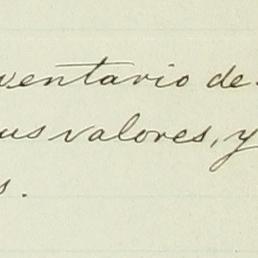 ventario de
us valores, y
s.